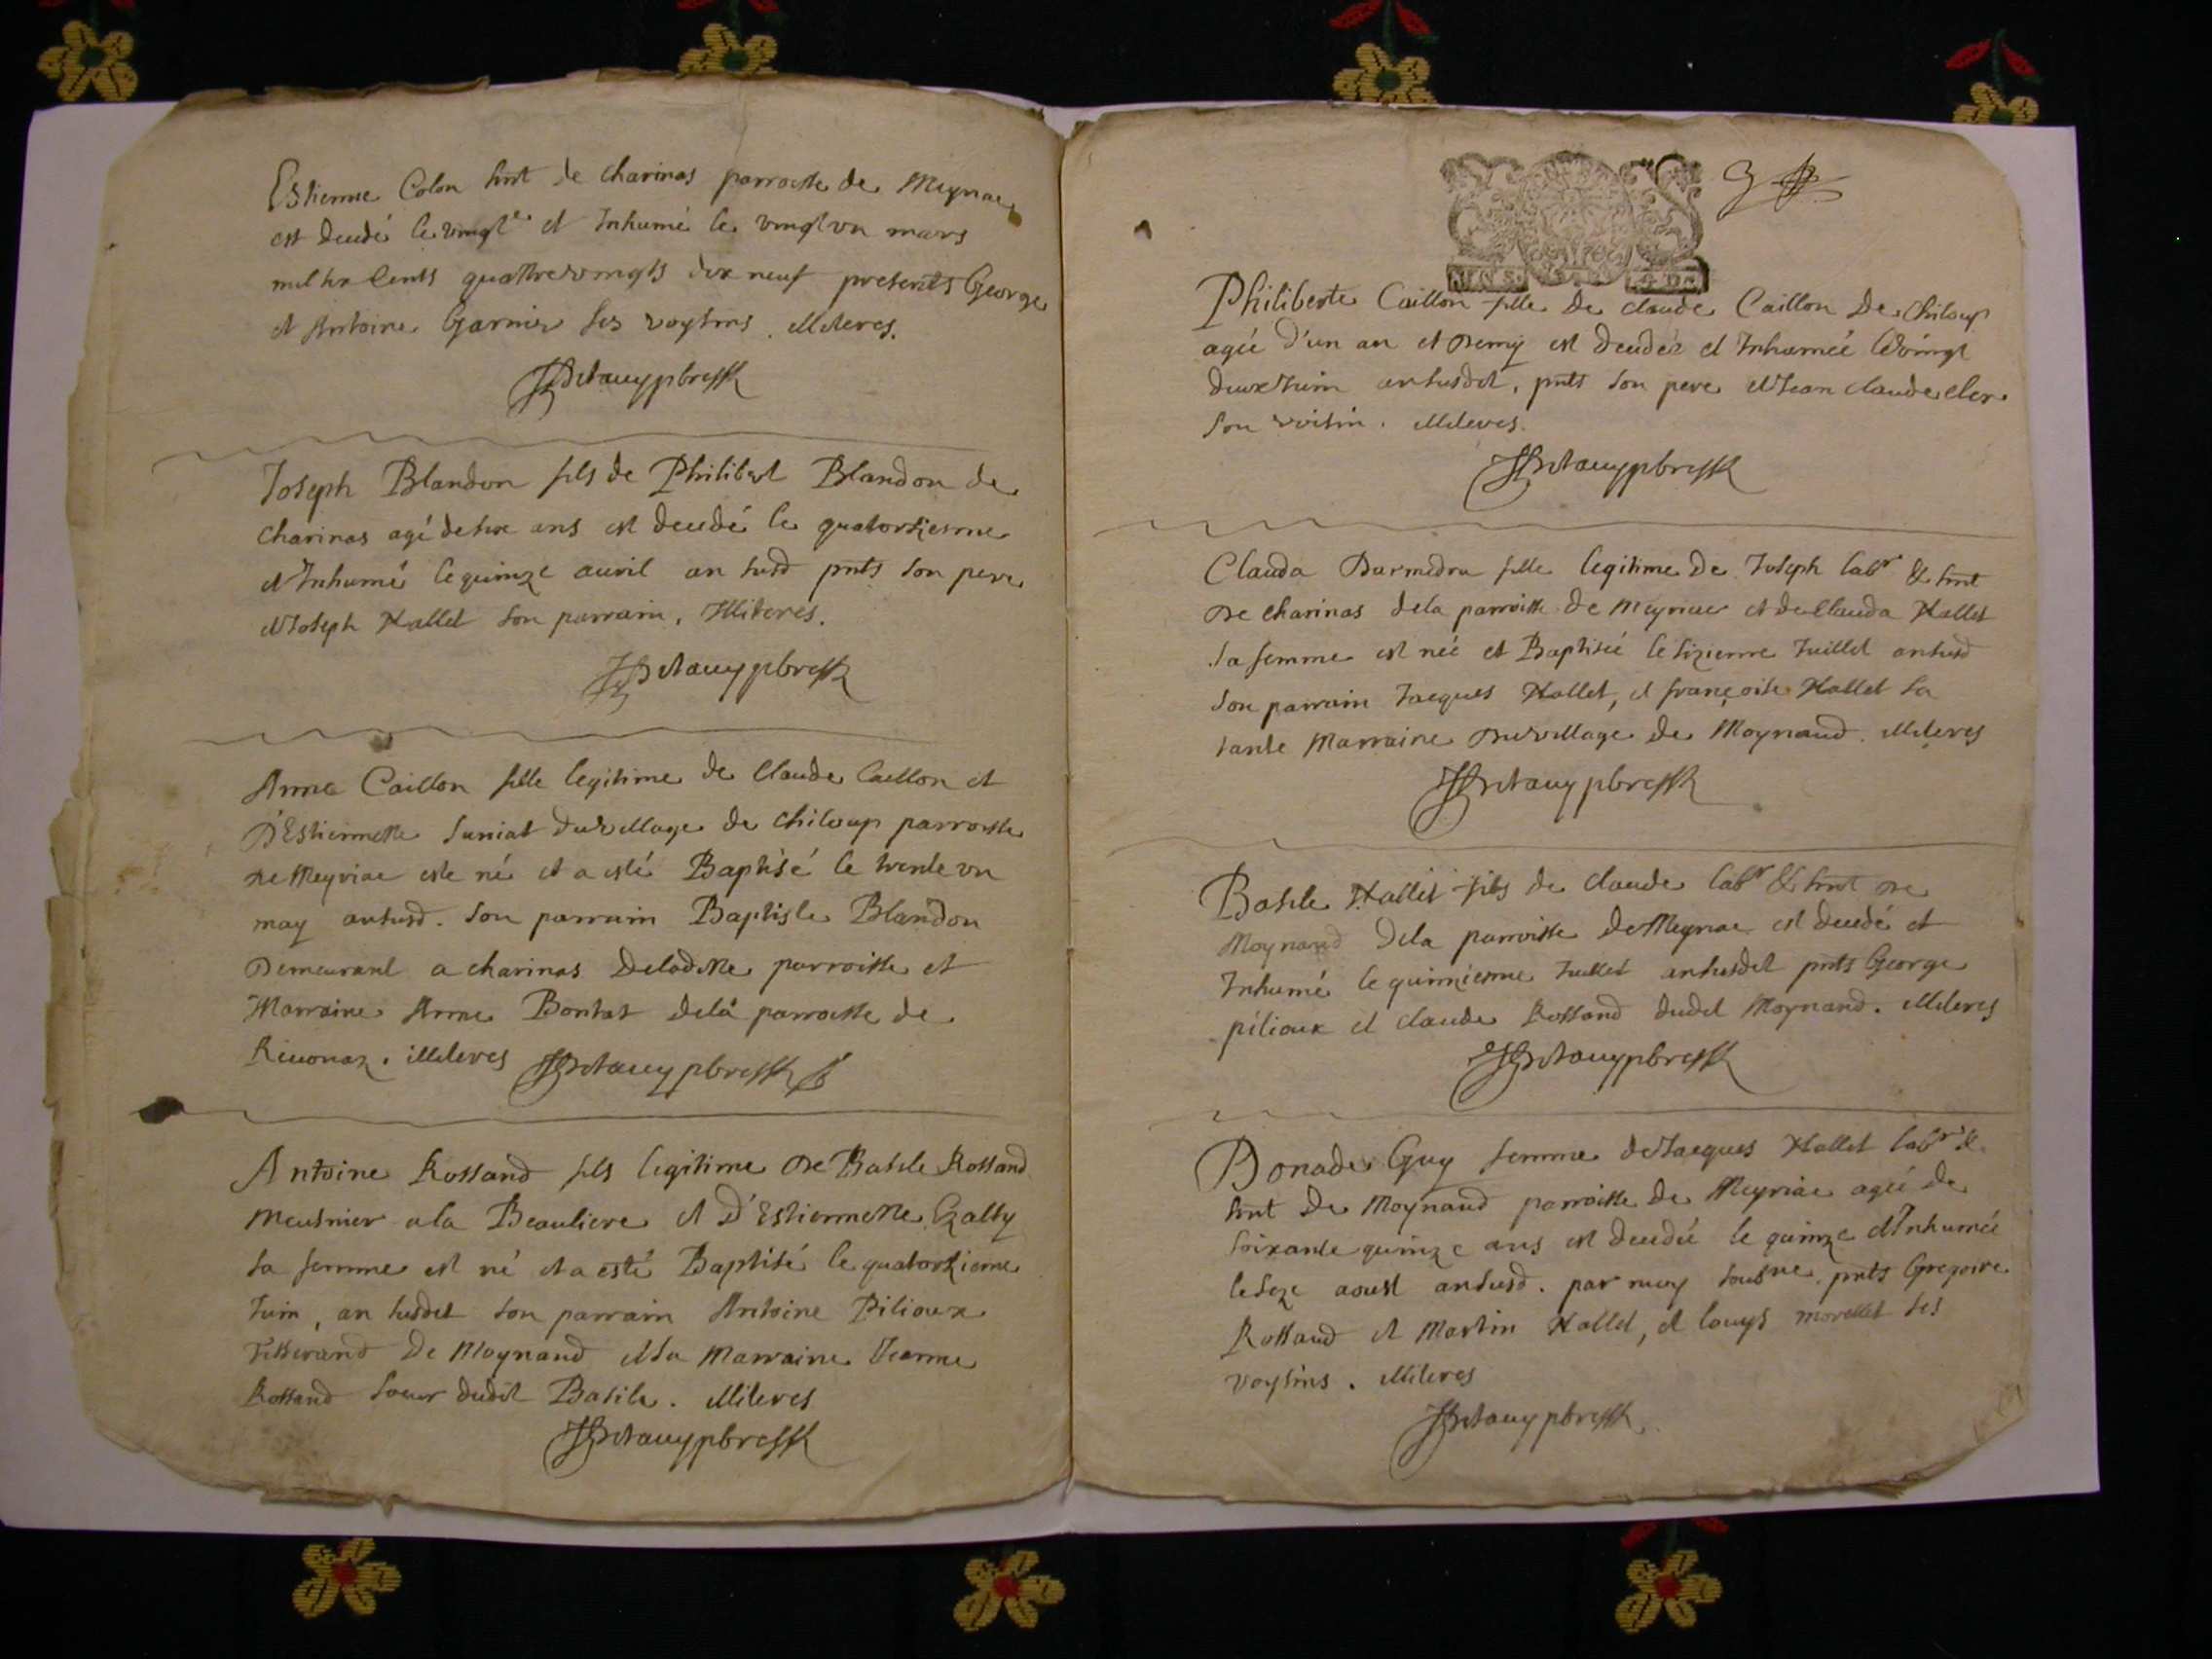 Estienne Colon hnt de charinas parroisse de Meyriac
est decedé le vingt.e et Inhumé le vingt vn mars
mil six cents quattre vingts dix neuf presents George
et Antoine Garnier ses voysins. illiteres.
Joseph Blandon fils de Philibert Blandon de
charinas agé de six ans est decedé le quatorziesme
et Inhumé le quinze auril an susd pnts son pere
et Joseph Hallet son parrain. Illiteres.
Anne Caillon fille legitime de Claude Caillon et
D'Estiennette Juniat du village de chiloup parroisse
de Meyriac este né et a esté Baptisé le trente vn
may an susd. son parrain Baptiste Blandon
Demeurant a charinas de laditte parroisse et
Marraine Anne Bontat de la parroisse de
Riuonaz. illiteres
Antoine Rossand fils legitime De Basile Rossand
meusnier a la Beauliere et D'Estiennette
sa femme est né et a esté Baptisé le quatorzieme
Juin, an susdit son parrain Antoine Pilioux
Tisserand De Moynand et sa Marraine Jeanne
Rossand soeur dudit Basile. illiteres
Philiberte Caillon fille de claude Caillon De chiloup
agée d'un an et demy est decedée et Inhumée le vingt
deux Juin an susdit, pnts son pere et Jean claude clerc
son voisin. illiteres.
Clauda Darmedru fille legitime de Joseph labr & hnt
De charinas de la parroisse de Meyriac et de Clauda Hallet
sa femme est née et Baptisée le sixieme Juillet an susd
son parrain Jacques Hallet, et françoise Hallet sa
tante Marraine Du village de Moynand. illiteres
Basile Hallet fils de claude labr & hnt De
Moynand de la parroisse de Meyriac est decedé et
Inhumé le quinzieme Juillet an susdit pnts George
pilioux et claude Rossand dudit Moynand. illiteres
Donade Guy femme de Jacques Hallet labr &
hnt De Moynand parroisse de Meyriac agée de
soixante quinze ans est decedée le quinze et Inhumée
le seze aoust an susd. par moy sousne pnts Gregoire
Rossand et Martin Hallet, et louys morellet ses
voysins. illiteres